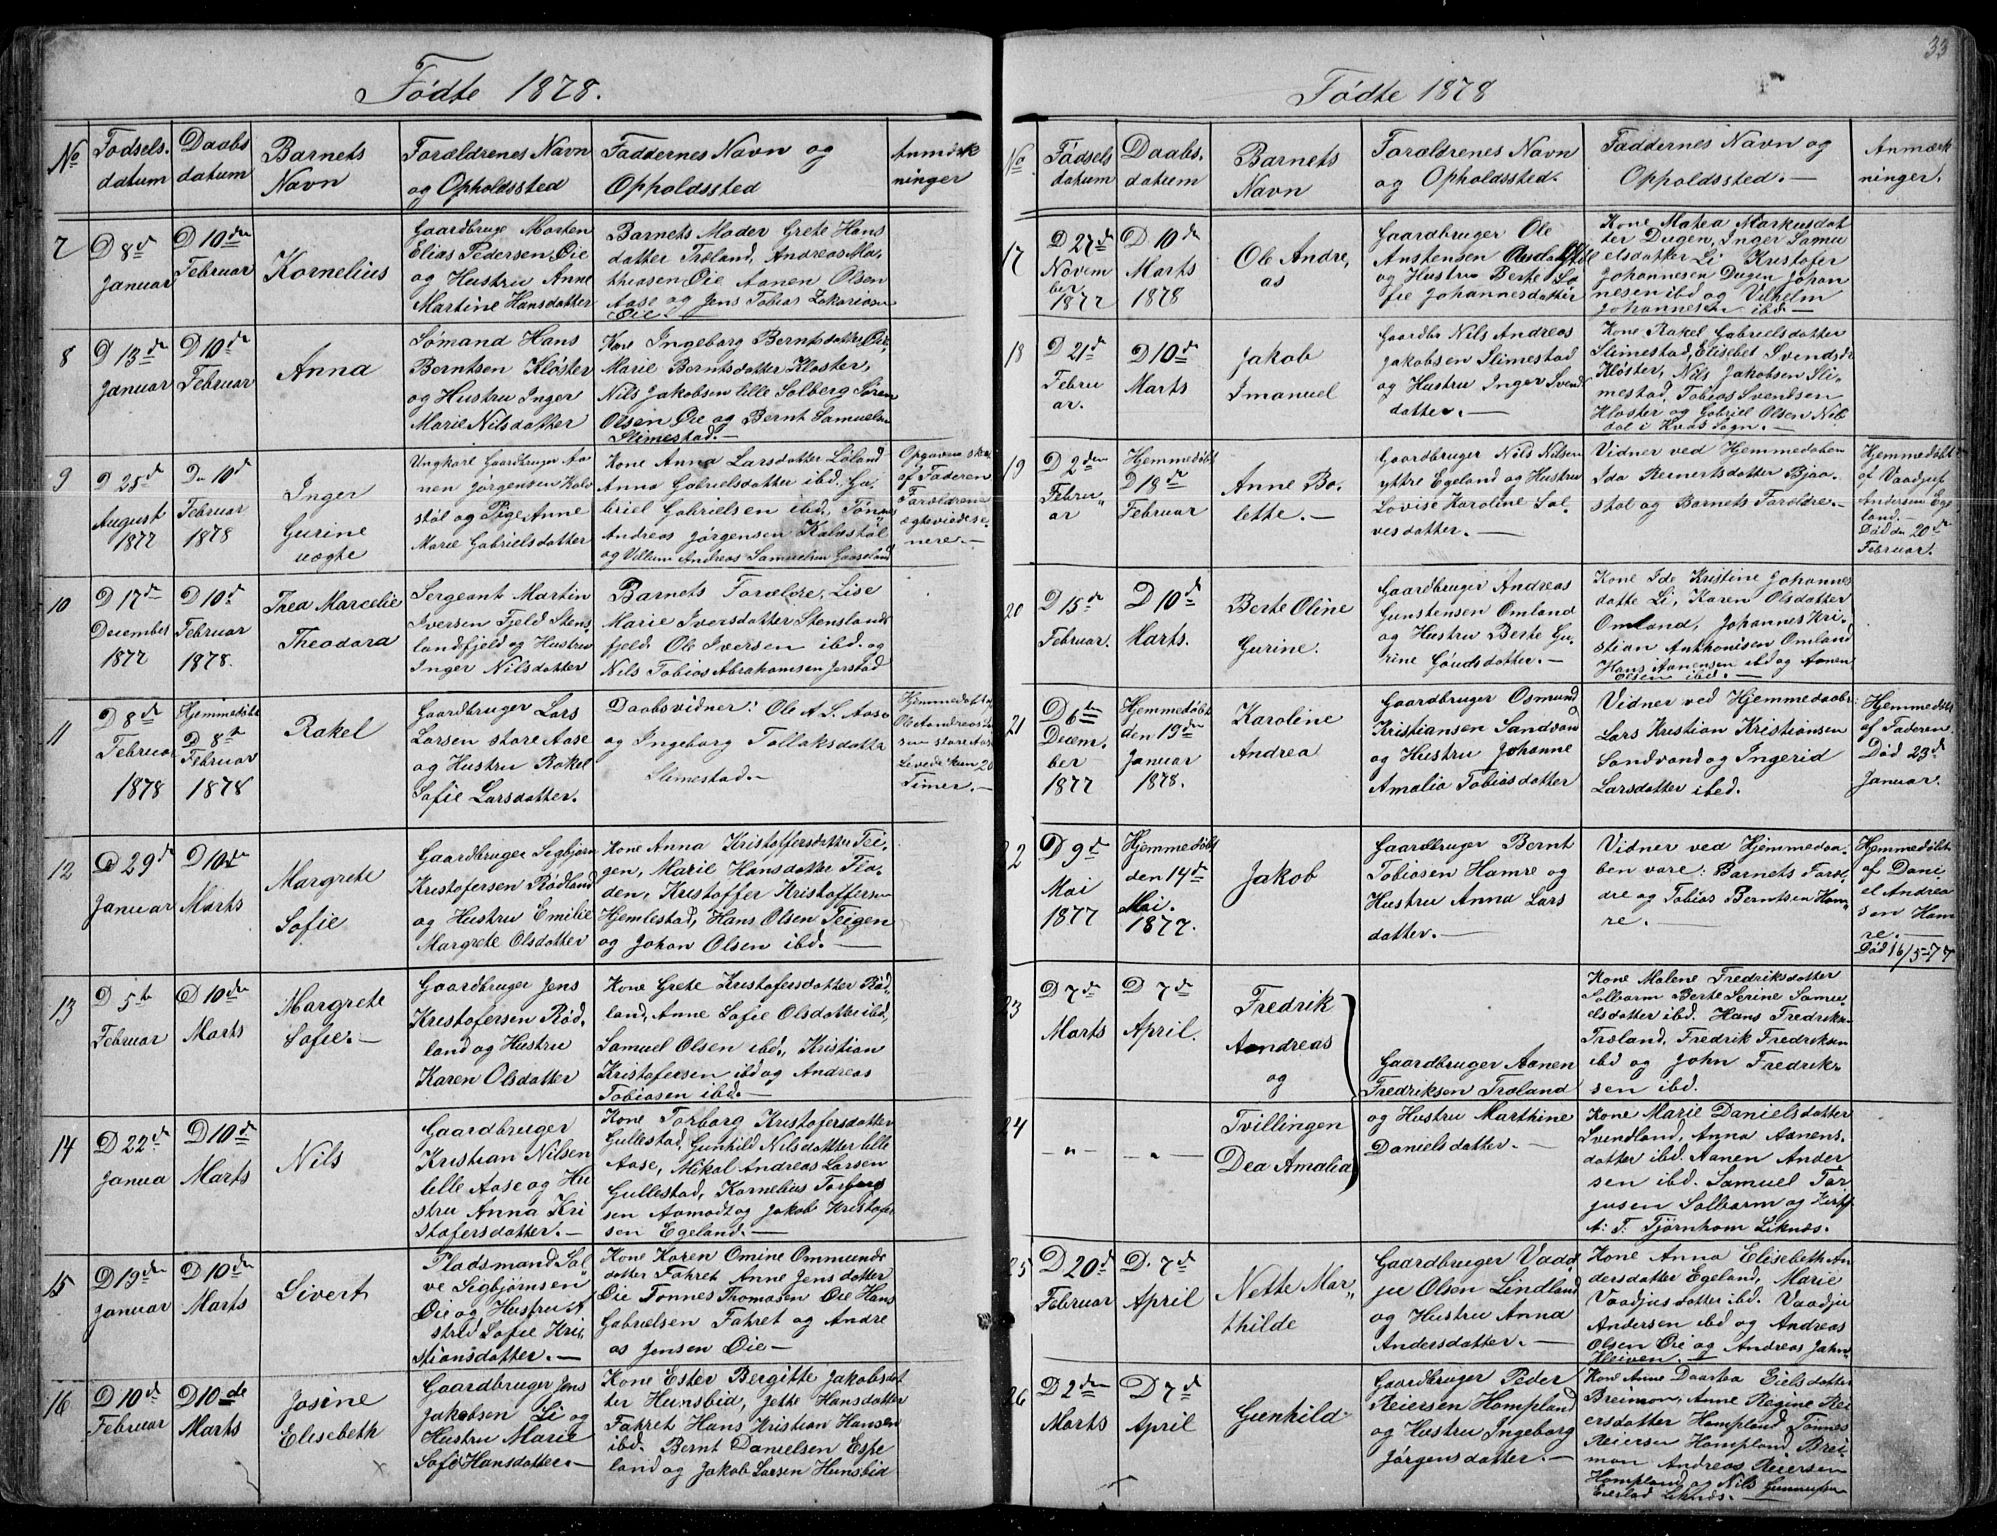 33
Födte 1878.
No
Födsels-
datum
Daabs
datum
Barnets
Navn
Forældrenes Navn
og Opholdssted
Faddernes Navn og
Opholdssted
Anmærk
ninger
7
D 8de
Januar
D 10de
Februar
Kornelius
Gaardbruge Morten
Elias Pedersen Øie
og Hustru Anne
Martine Hansdatter
Barnets Moder Grete Hans
datter Træland, Andreas Ma-
thiasen Øie Aanen Olsen
Aase og Jens Tobias Zakariasen
Øie
8
D 13de
Januar
D 10de
Februar
Anna
Sømand Hans
Berntsen Kløster
og Hustru Inger
Marie Nilsdatter
Kone Ingeborg Berntsdatter Øie,
Marie Berntsdatter Kloster,
Nils Jakobsen lille Solberg Sören
Olsen Øie og Bernt Samuelsen
Slimestad.—
9
D 25de
August
1877
Dn 10de
Februar
1878
Inger
Gurine
uægte
Ungkarl Gaardbruger Aa
nen Jørgensen Kalv
stöl og Pige Anne
Marie Gabrielsdatter
Kone Anna Larsdatter Löland
Anna Gabrielsdatter ibd. Ga-
briel Gabrielsen ibd, Tönnes
Andreas Jørgensen Kalvstöl
og Villum Andreas Samuelsen Gaaseland
Opgavene skre
af Faderen
Forældrene
ægteviedese-
nere.—
10
D 17de
December
1877
D 10de
Februar
1878.
Thea Marcelie
Theodora
Sergeant Martin
Iversen Fjeld Stens
landfjeld og Hustru
Inger Nilsdatter
Barnets Forældre, Lise
Marie Iversdatter Stenslands
fjeld. Ole Iversen ibd. og
Nils Tobias Abrahamsen Jerstad
11
D 8de
Februar
1878
Hjemmedöbt
D 8de
Februar
1878
Rakel
Gaardbruger Lars
Larsen store Aase
og Hustru Rakel
Sofie Larsdatter.
Daabsvidner: Ole A. L. Aase
og Ingeborg Tollaksdatter
Slimestad.—
Hjemmedöft af
Ole Andreas Lar
sen store Aase
Levede kun 20
Timer.—
12
D 29de
Januar
D 10de
Marts
Margrete
Sofie
Gaardbruger Segbjørn
Kristofersen Rødland
og Hustru Emilie
Margrete Olsdatter
Kone Anna Kristoffersdatter Tei,
gen, Marie Hansdatter Fla-
den, Kristoffer Kristoffersen
Hjemlestad, Hans Olsen Teigen
og Johan Olsen ibd.—
13
D 5te
Februar
D 10de
Marts
Margrete
Sofie.—
Gaardbruger Jens
Kristofersen Rød-
land og Hustru
Karen Olsdatter
Kone Grete Kristofersdatter Rød-
land, Anne Sofie Olsdatter ibd,
Samuel Olsen ibd., Kristian
Kristofersen ibd og Andreas
Tobiasen ibd.—
14
D 22de
Janua
D 10de
Marts
Nils
Gaardbruger
Kristian Nilsen
lille Aase og Hu
stru Anna Kri
stofersdatter.—
Kone Torborg Kristofersdatter
Gullestad, Gunhild Nilsdatter lille
Aase, Mikal Andreas Larsen
Gullestad, Kornelius Torjus
sen Aamodt og Jakob Kristofer
sen Egeland.—
15
D 19de
Januar
D 10de
Marts
Sivert
Pladsmand Sal-
ve Sigbjørnsen
Øie og Hustru A
strid Sofie Kri,
stiansdatter.—
Kone Karen Omine Ommunds
datter Fahret Anne Jensdatter
Øie Tønnes Thomasen Øie Hans
Gabrielsen Fahret og Andre
as Jensen Øie—
16
D 10de
Februar
D 10de
Marts
Josine
Elisebeth
Gaardbruger Jens
Jakobsen Li og
Hustru Marie
Sofi Hansdatter.—
Kone Ester Bergitte Jakobsdat
ter Hunsbid, Jette Hansdatter
Fahret Hans Kristian Hansen
ibd. Bernt Danielsen Espe
land og Jakob Larsen Hunsbid
Födte 1878
No
Födsels
datum
Daabs.
datum
Barnets
Navn
Forældrenes Navn
og Opholdssted.
Faddernes Navn og
Opholdssted.—
Anmærk
ninger.
17
D 27de
Novem
ber
1877
D 10de
Marts
1878
Ole Andre,
as
Gaardbruger Ole
Anstensen
og Hustru Berte So
fie Johannesdatter
Kone Matea Markusdat
ter Dugen, Inger Samu
elsdatter Li Kristofer
Johannesen Dugen Johan
nesen ibd og Vilhelm
Johannesen ibd.—
18
D 21de
Febru
ar.
D 10de
Marts
Jakob
Imanuel
Gaardbr Nils Andreas
Jakobsen Slimestad
og Hustru Inger Svend
datter.—
Kone Rakel Gabrielsdatter
Slimestad, Elisebet Svendsdr
Klöster, Nils Jakobsen Sli-
mestad. Tobias Svendsen
Kloster og Gabriel Olsen Nils
dal i Kvås Sogn.—
19
D 2den
Febru,
ar
Hjemmedöbt
D 18de
Februar
Anne Bo-
lette.—
Gaardbruger Nils Nilsen
yttre Egeland og Hustru
Lovise Karoline Sal
vesdatter.
Vidner ved Hjemmedaaben
Ida Reinertsdatter Bjaa-
stal og Barnets Forældre.—
Hjemmedöbt
af Vaadjuf
Andersen Ege
land.—
Död den 20de
Februar.
20
D 15de
Februar.
D 10de
Marts.
Berte Oline
Gurine.
Gaardbruger Andreas
Gunstensen Omland
og Hustru Berte Gu
rine Gundsdatter.—
Kone Ide Kristine Johannes
datte Li, Karen Olsdatter
Omland, Johannes Kri-
stian Anthonisen Omland
Hans Aanensen ibd og Aanen
Olsen ibd.—
21
D 6te
Decem-
ber
1877
Hjemmedöbt
den 19de
Januar
1878.
Karoline
Andrea
Gaardbruger Osmund
Kristiansen Sandvand
og Hustru Johanne
Amalia Tobiasdatter
Vidner ved Hjemmedaaben:
Lars Kristian Kristiansen
Sandvand og Ingerid
Larsdatter ibed.
Hjemmedöbt
af Faderen
Död 23de
Januar.
22
D 9de
Mai
1877
Hjemmedöbt
den 14de
Mai.
1877.
Jakob
Gaardbruger Bernt
Tobiasen Hamre og
Hustru Anna Lars
datter.—
Vidner ved Hjemmedaa-
ben vare: Barnets Foræl-
dre og Tobias Berntsen Ham-
re.—
Hjemmedöbt
af Dani,
el Andrea
sen Ham
re.—
Död 16/5-77
23
D 7de
Marts
D 7de
April.
Fredrik
Aandreas
og
Gaardbruger Aanen
Fredriksen Træland
og Hustru Marthine
Danielsdatter.—
Kone Malene Fredriksdatter
Solbarm Berte Serine Samu-
elsdatter ibd. Hans Fredriks
Træland, Fredrik Fredriksen
ibd og John Fredrik-
sen ibd.
24
— „ —
— „ —
Tvillingen
Dea Amalia
Kone Marie Danielsdatter
Svendland, Anna Aanens-
datter ibd. Aanen Ander
sen ibd. Samuel Tar
jusen Solbarm og Kirks.
A. T. Tjørnhom Liknes.
25
D 20de
Februar
D. 7de
April
Nette Mar„
thilde
Gaardbruger Vaad,
ju Olsen Lindland
og Hustru Anna
Andersdatter.—
Kone Anna Elisebeth An
dersdatter Egeland, Marie
Vaadjusdatter ibd. Vaadju
Andersen ibd og Andreas
Olsen Øie og Andreas Jahn
Kleiven.—
26
D 2den
Marts
D 7de
April
Gunhild
Gaardbruger Peder
Reiersen Hompland
og Hustru Ingeborg
Jörgensdatter.—
Kone Anne Daartea Eielsdatter
Breimon, Anne Regine Rei
ersdatter Hompland Tönnes
Reiersen Hompland, Brei-
mon Andreas Reiersen
Hompland og Nils Gunnufsen
Eiestad Liknes.—